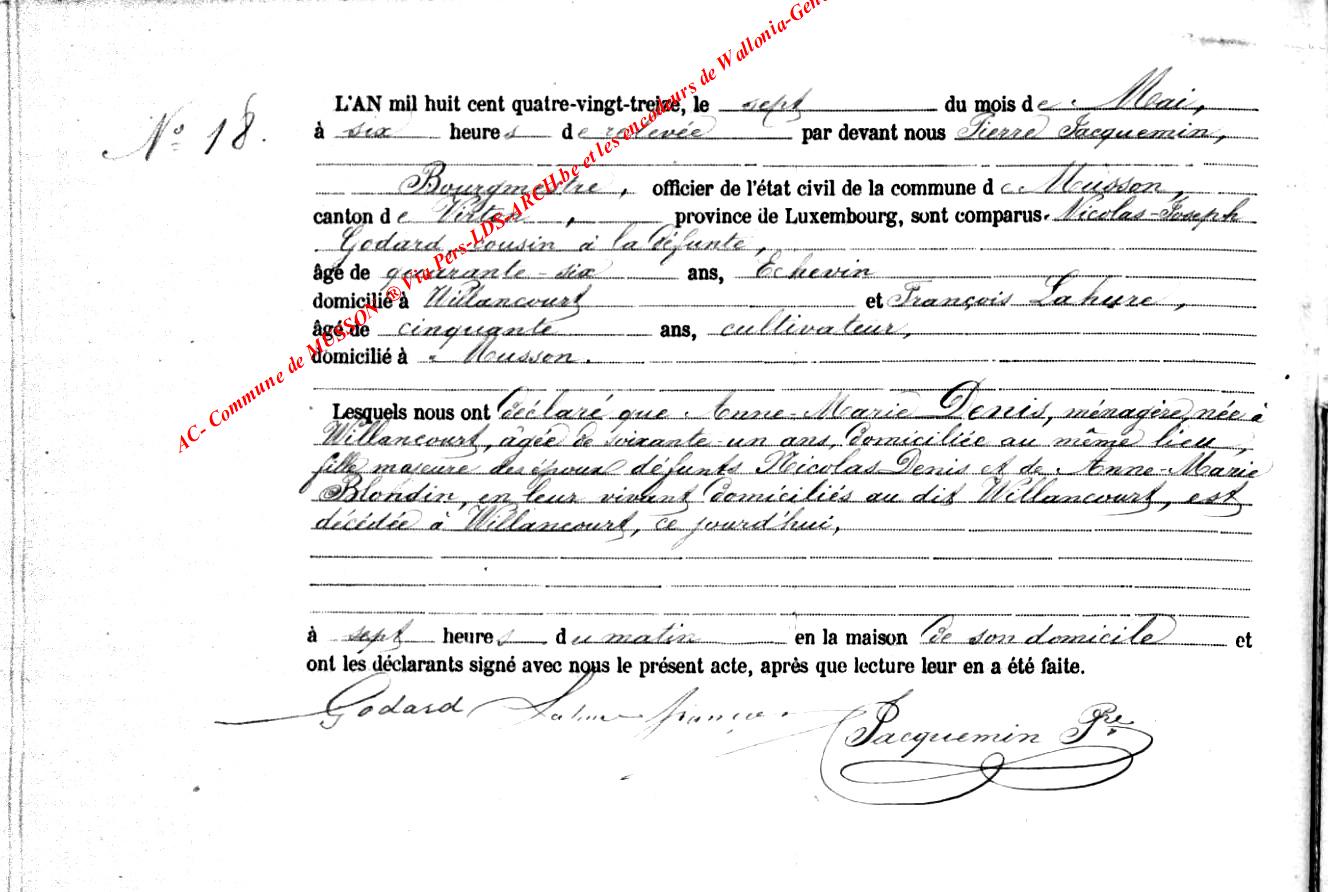 AC- Commune de MUSSON ® Via Pers-LDS-ARCH.be et les encodeurs de Wallonia-Gen
N° 18.
L'AN mil huit cent quatre-vingt-treize, le sept du mois de Mai,
à six heures de relevée par devant nous Pierre Jacquemin,
Bourgmestre, officier de l'état civil de la commune de Musson,
canton de Virton, province de Luxembourg, sont comparus Nicolas-Joseph
Godard, cousin à la défunte,
âgé de quarante-six ans, Echevin
domicilié à Willancourt et François Lahure,
âgé de cinquante ans, cultivateur,
domicilié à Musson.
Lesquels nous ont déclaré que Anne-Marie Denis, ménagère, née à
Willancourt, âgée de soixante-un ans, domiciliée au même lieu,
fille majeure des époux défunts Nicolas Denis et de Anne-Marie
Blondin, en leur vivant domiciliés au dit Willancourt, est
décédée à Willancourt, ce jourd'hui,
à sept heures du matin en la maison de son domicile et
ont les déclarants signé avec nous le présent acte, après que lecture leur en a été faite.
Godard Lahure françois Jacquemin Pre